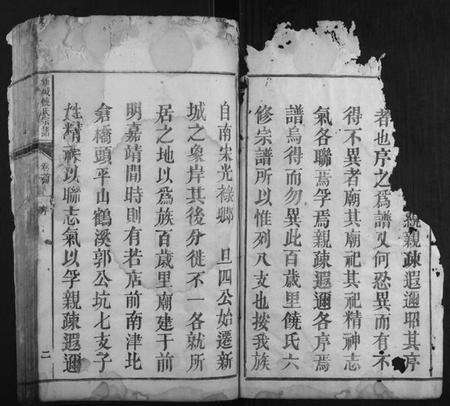 親親疎遐邇耶其序
者也序之為譜又何恐異而有不
得不異者廟其廟祀其祀精神志
氣各聯焉孚焉親疎遐邇各序焉
譜烏得而勿異此百歲里饒氏六
修宗譜所以惟列八支也按我族
自南宋光祿卿 旦四公始遷新
城之象岸其後分徙不一各就所
居之地以為族百歲里廟建于前
明嘉靖間時則有若店前南津北
倉橋頭平山鶴溪郭公坑七支子
姓精神以聯志氣以孚親疎遐邇
序
二